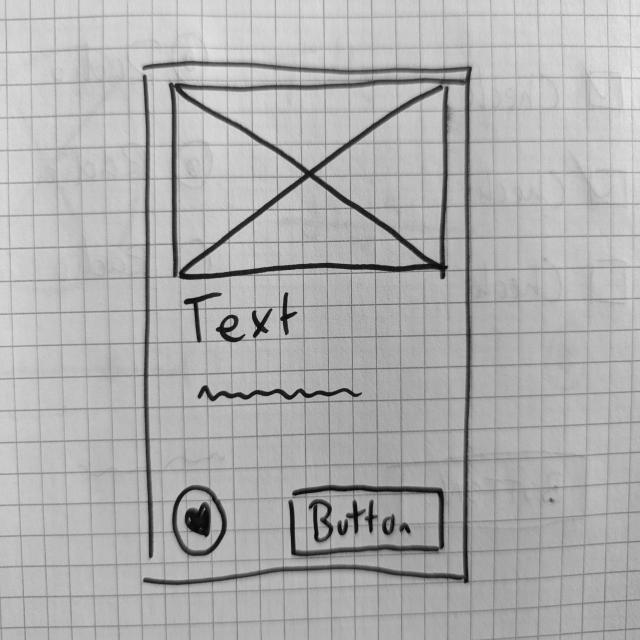 Text
Button